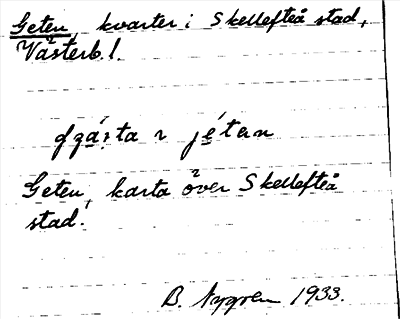 Geten, kvarter i Skellefteå stad,
Västerb. l.
jétan
Geten, karta över Skellefteå
stad.
B. Nygren 1933.